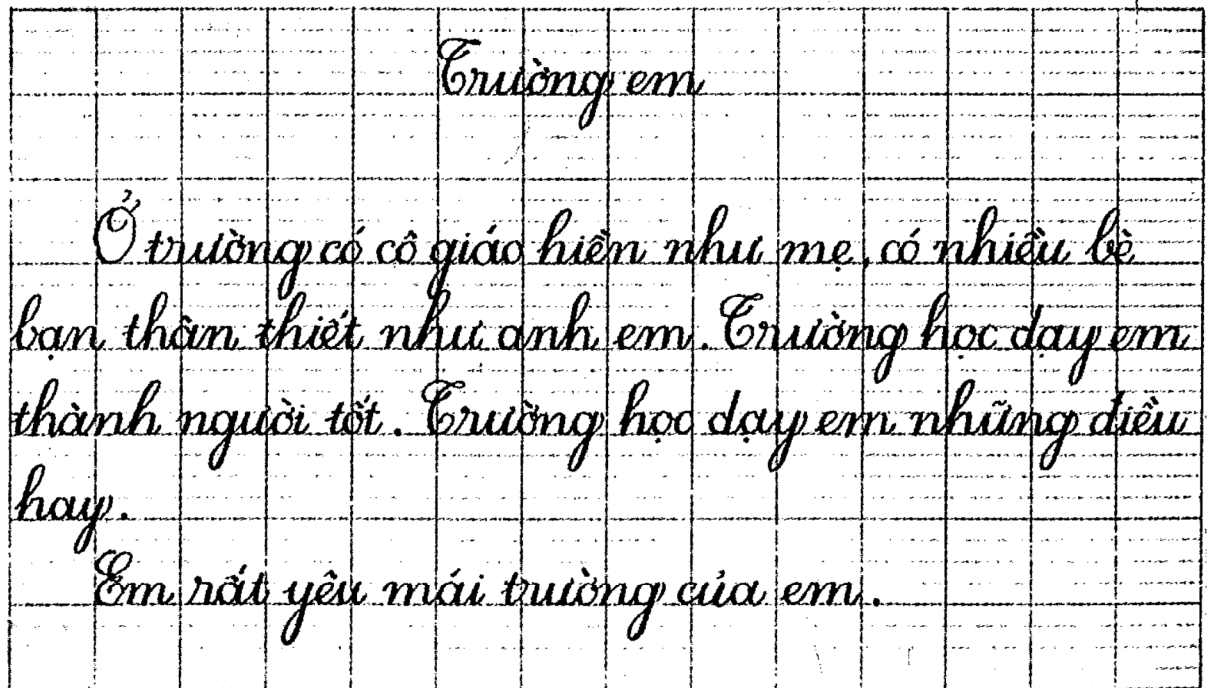 Trường em
Ở trường có cô giáo hiền như mẹ, có nhiều bè
bạn thân thiết như anh em. Trường học dạy em
thành người tốt. Trường học dạy em những điều
hay.
Em rất yêu mái trường của em.